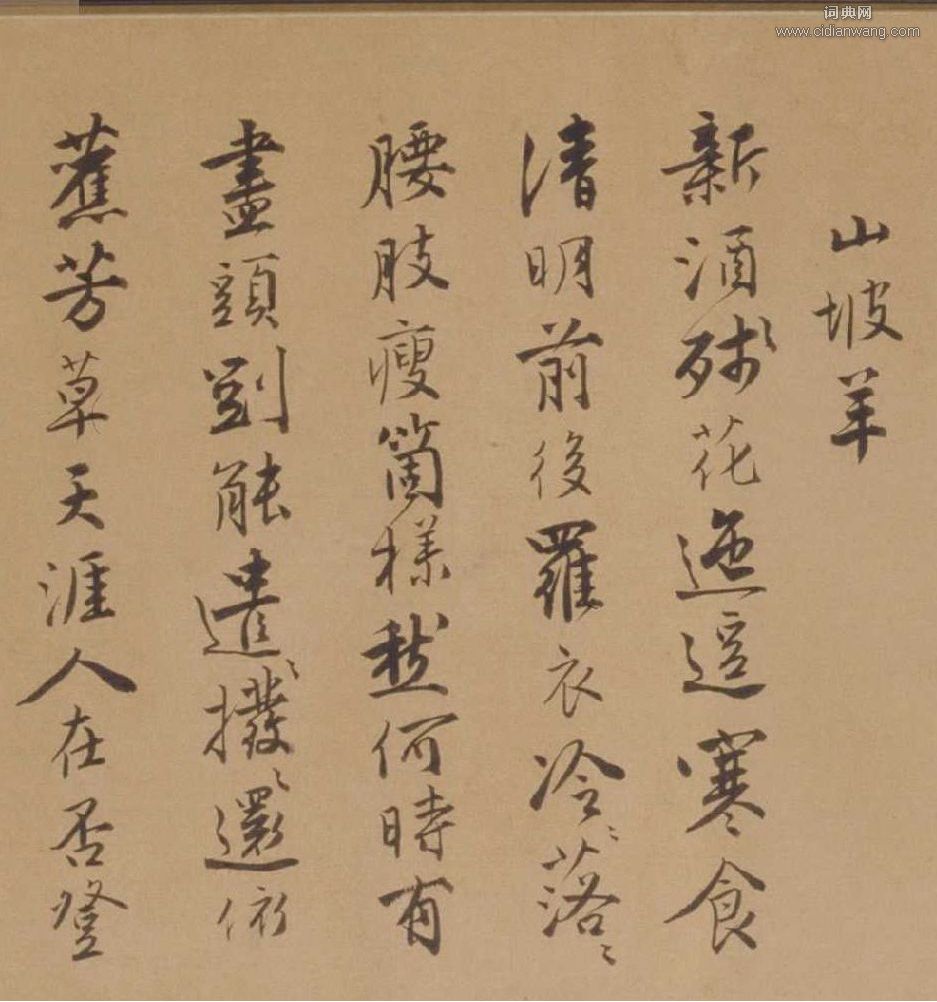 词典网
www.cidianwang.com
山坡羊
新酒殘花迤逗寒食
清明前後羅衣冷〻落〻
腰肢瘦箇樣愁何時有
盡頭剛能遣〻撥〻還依
舊芳草天涯人在否登